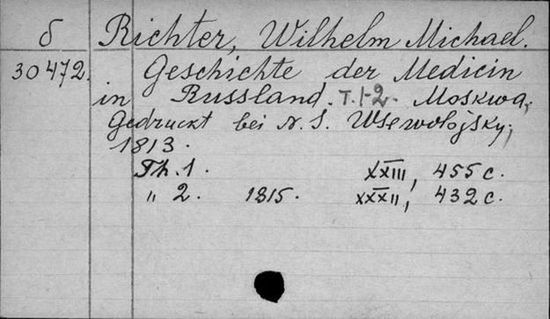 δ Richter, Wilhelm Michael.
30472. Geschichte der Medicin
in Russland. T. 1-2. Moskwa,
Gedruckt bei N. S. Wsewolojsky,
1813.
Th. 1. XXIII, 455 c.
" 2. 1815. XXXII, 432 c.